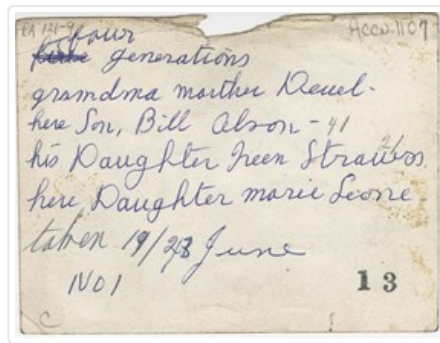 PA 121-9
Accn. 1107
four
generations
grandma marther Deuel.
here Son, Bill Olson - 41
his Daughter Ireen Strauss 21
here Daughter marie Leone
taken 19/23 June
NO 1
13
C